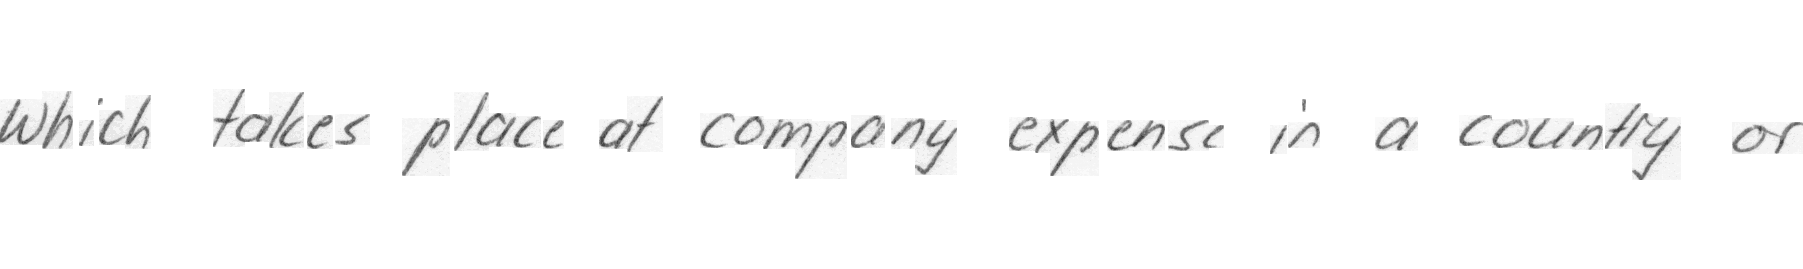 which takes place at company expense in a country or